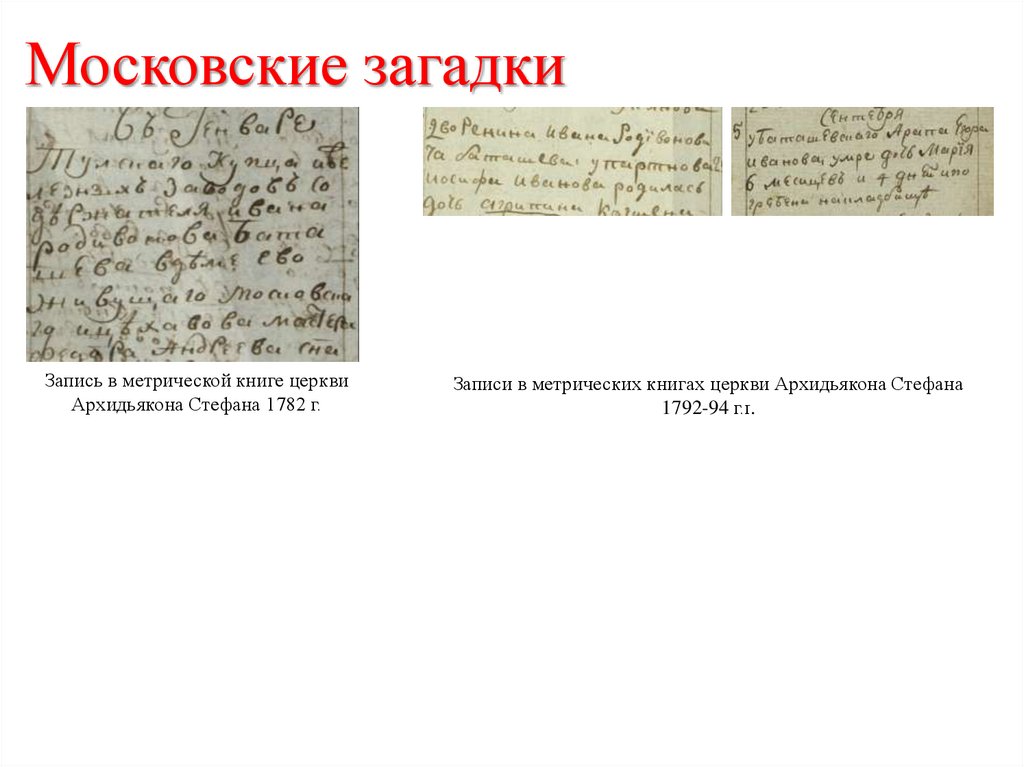 Московские загадки
Въ Генваре
Тулскаго Купца иже
лезнихъ заводовъ со
дѣржателя ивана
родивонова Бата
шева вдоме ево
живущаго московска
го
Федора Андреева сна
Запись в метрической книге церкви
Архидьякона Стефана 1782 г.
дворенина ивана Родївонови
ча баташева у партнова
иосифа иванова родилась
дочь агрипина
Сентебря
5 у баташевскаго Арапа Егора
иванова умре дочь Марїя
6 месяцевъ и 4 дней ипо
гребена накладбище
Записи в метрических книгах церкви Архидьякона Стефана
1792-94 г.г.